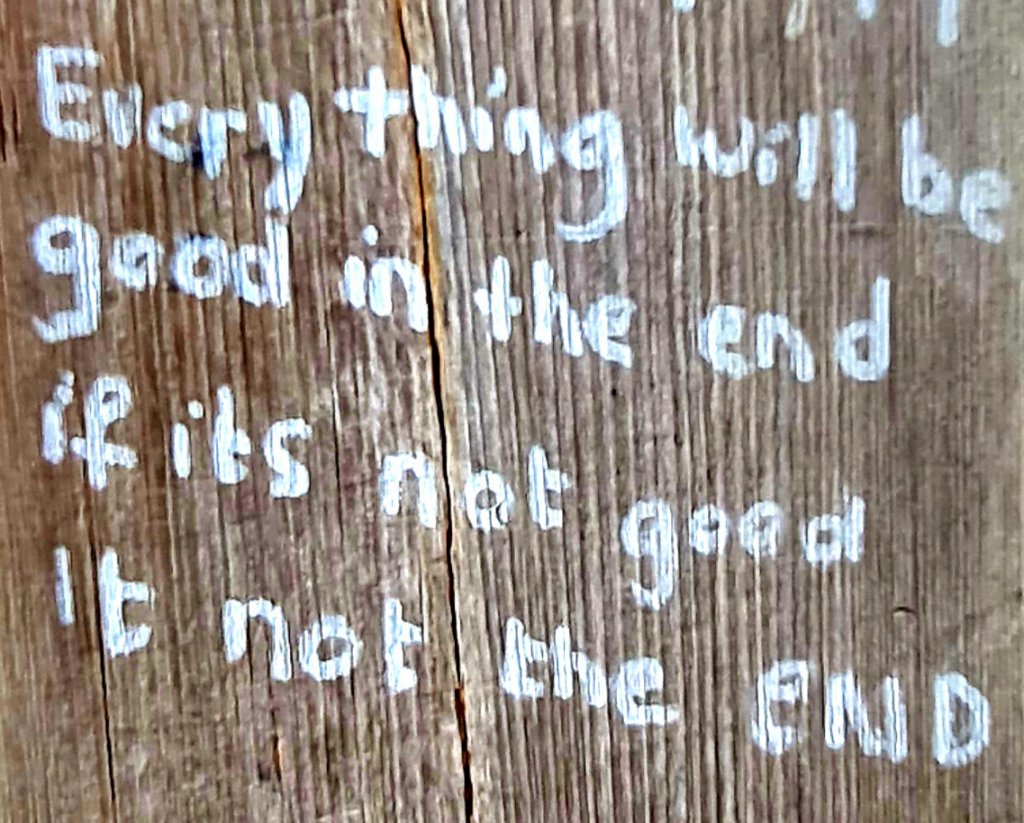 Everything will be
good in the end
if its not good
It not the END